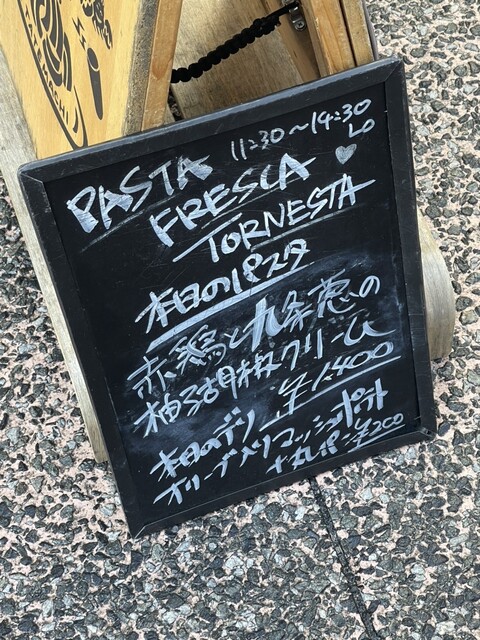 11:30〜14:30
LO
PASTA
FRESCA
TORNESTA
本日のパスタ
赤鶏と九条葱の
柚子胡椒クリーム
¥1,400
本日のデリ
オリーブ入りマッシュポテト
¥200